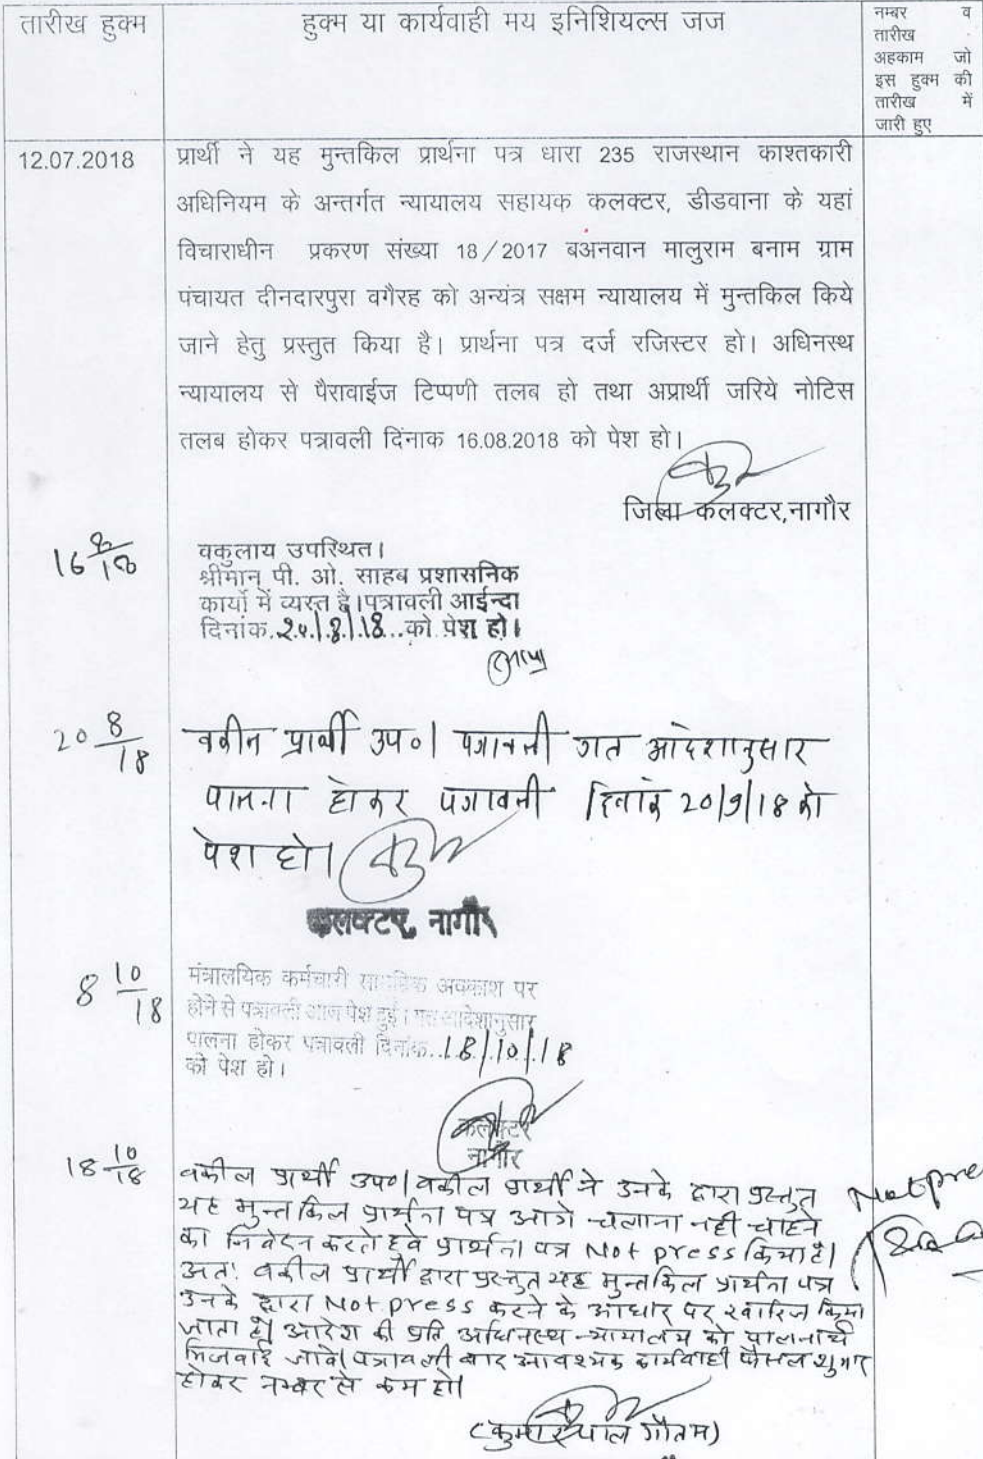 तारीख हुक्म
हुक्म या कार्यवाही मय इनिशियल्स जज
नम्बर व
तारीख
अहकाम जो
इस हुक्म की
तारीख में
जारी हुए
12.07.2018
प्रार्थी ने यह मुन्तकिल प्रार्थना पत्र धारा 235 राजस्थान काश्तकारी
अधिनियम के अन्तर्गत न्यायालय सहायक कलक्टर, डीडवाना के यहां
विचाराधीन प्रकरण संख्या 18/2017 बअनवान मालुराम बनाम ग्राम
पंचायत दीनदारपुरा वगैरह को अन्यंत्र सक्षम न्यायालय में मुन्तकिल किये
जाने हेतु प्रस्तुत किया है। प्रार्थना पत्र दर्ज रजिस्टर हो। अधिनस्थ
न्यायालय से पैरावाईज टिप्पणी तलब हो तथा अप्रार्थी जरिये नोटिस
तलब होकर पत्रावली दिंनाक 16.08.2018 को पेश हो।
जिला कलक्टर,नागौर
16 8/18
वकुलाय उपस्थित।
श्रीमान् पी. ओ. साहब प्रशासनिक
कार्यो में व्यस्त है।पत्रावली आईन्दा
दिनांक 20/8/18 को पेश हो।
20 8/18
वकील प्रार्थी उप०। पत्रावली गत आदेशानुसार
पालना होकर पत्रावली दिनांक 20/9/18 को
पेश हो।
कलक्टर, नागौर
8 10/18
मंत्रालयिक कर्मचारी सामुहिक अवकाश पर
होने से पत्रावली आज पेश हुई। गत आदेशानुसार
पालना होकर पत्रावली दिनांक..18/10/18
को पेश हो।
कलक्टर
नागौर
18 10/18
वकील प्रार्थी उप०।वकील प्रार्थी ने उनके द्वारा प्रस्तुत
यह मुन्तकिल प्रार्थना पत्र आगे चलाना नहीं चाहने
का निवेदन करते हुवे प्रार्थना पत्र Not press किया है।
अतः वकील प्रार्थी द्वारा प्रस्तुत यह मुन्तकिल प्रार्थना पत्र
उनके द्वारा Not press करने के आधार पर खारिज किया
जाता है। आदेश की प्रति अधिनस्थ न्यायालय को पालनार्थ
भिजवाई जावे। पत्रावली बाद आवश्यक कार्यवाही फैसल शुमार
होकर नम्बर से कम हो।
Not pre
(कुमारपाल गौतम)